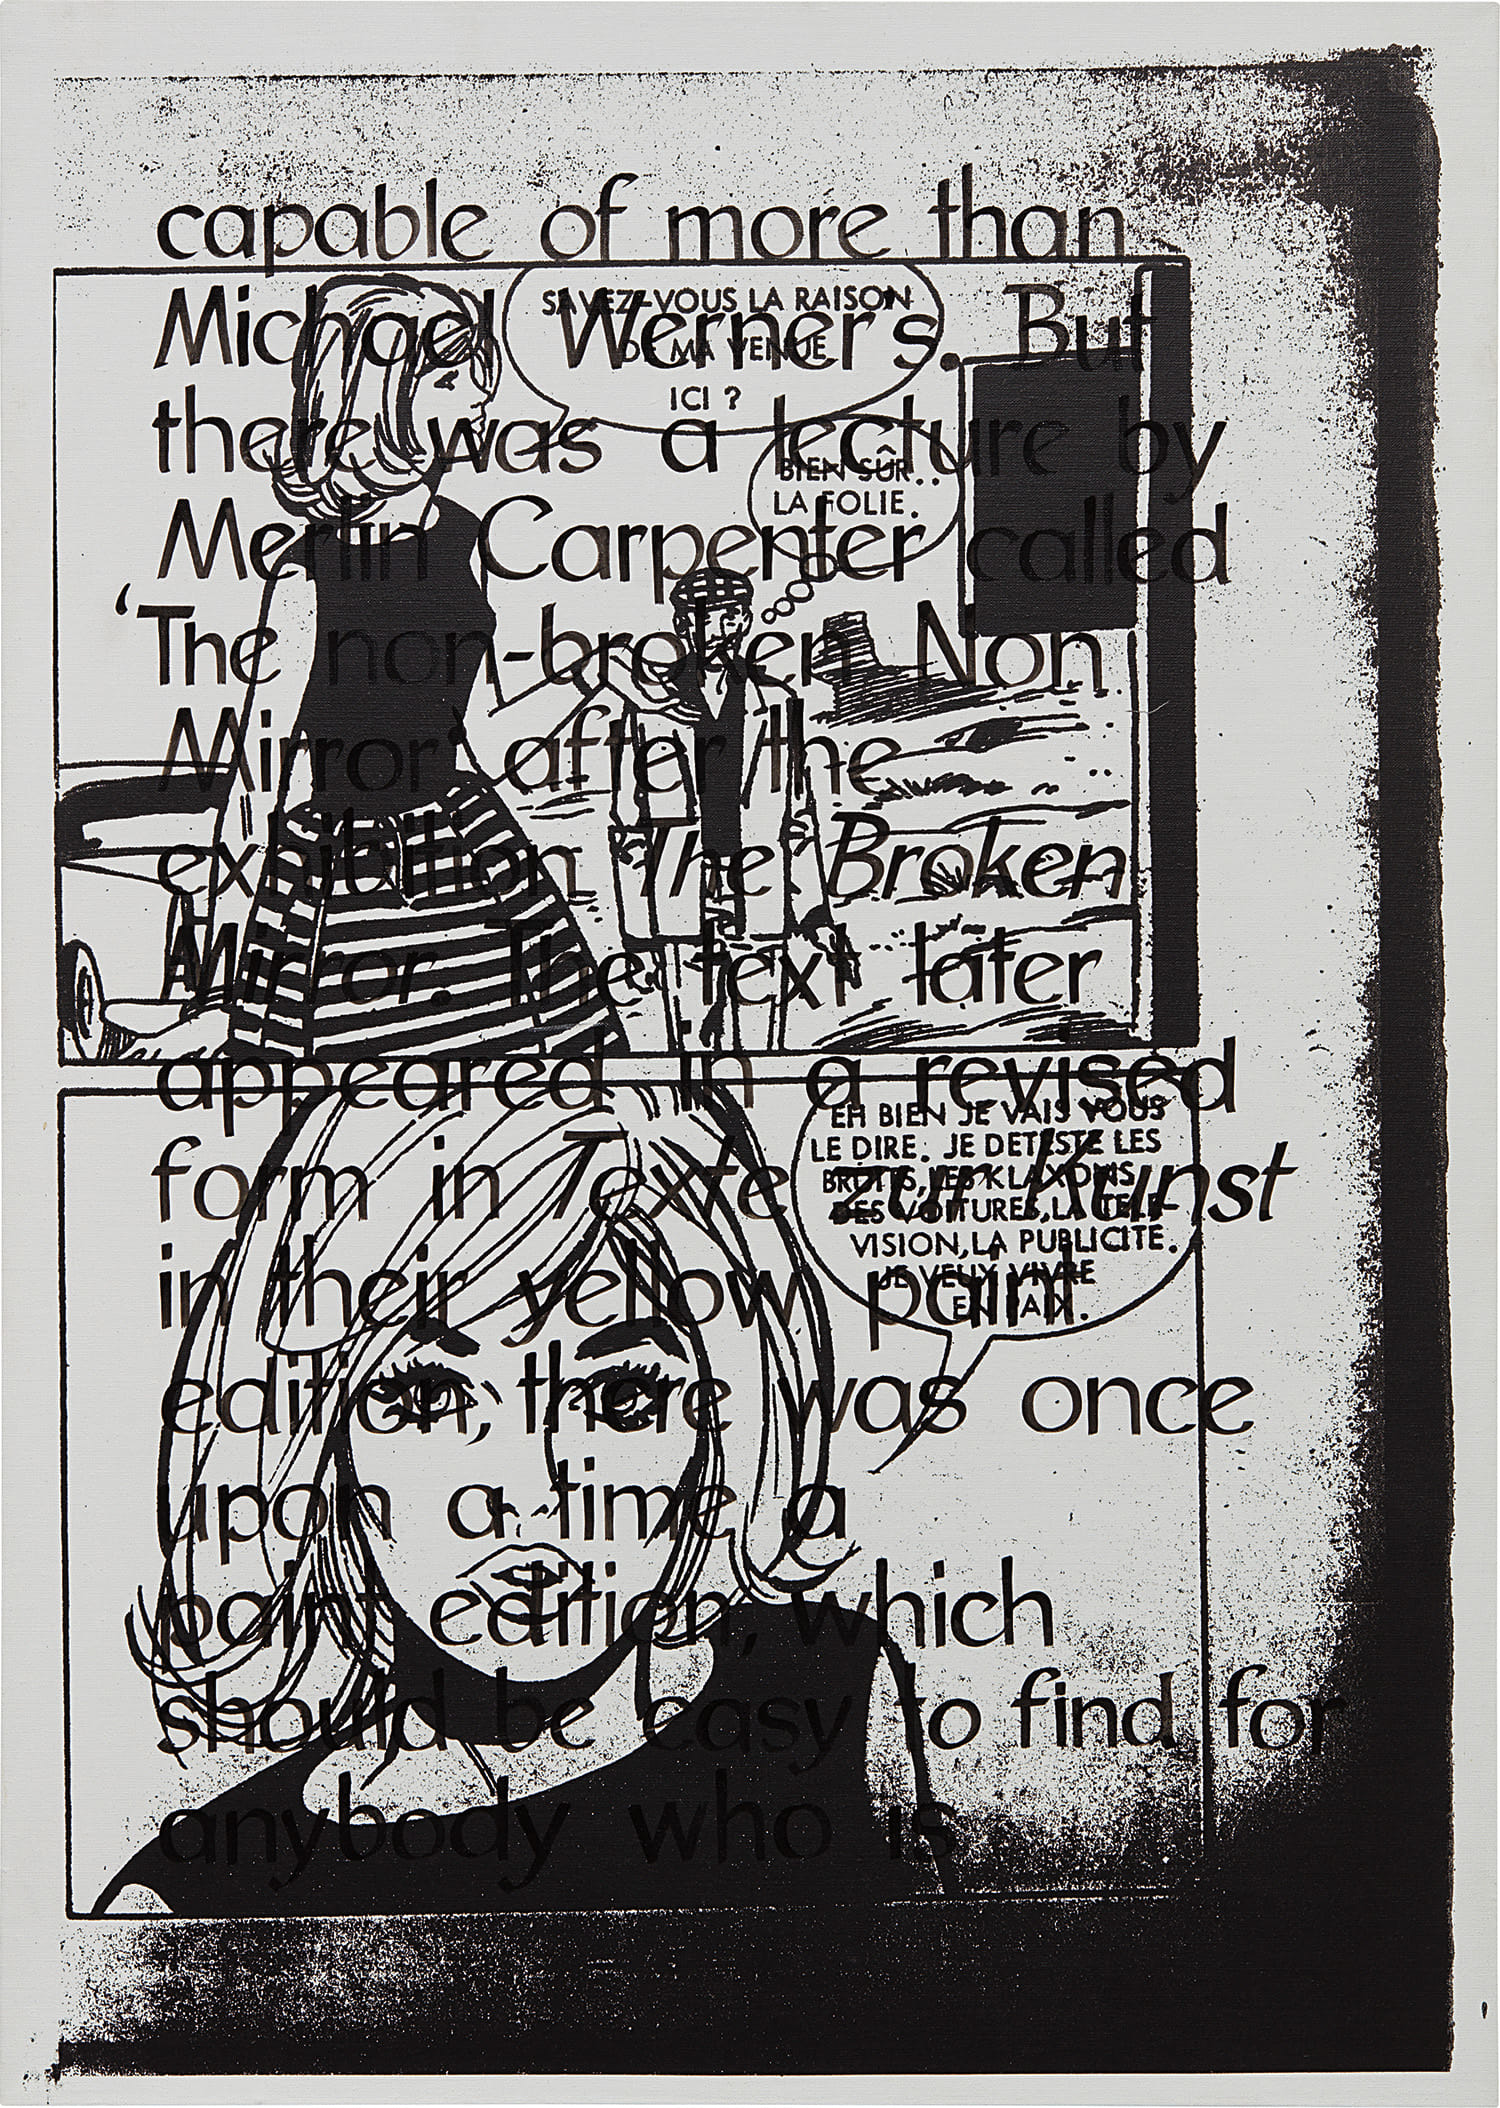 capable of more than
Michael Werner's. But
there was a lecture by
Merlin Carpenter called
'The non-broken Non
Mirror' after the
exhibition The Broken
Mirror. The text later
appeared in a revised
form in Texte zur Kunst
in their yellow paint
edition, there was once
upon a time a
paint edition, which
should be easy to find for
anybody who is
SAVEZ-VOUS LA RAISON
DE MA VENUE
ICI ?
BIEN SÛR..
LA FOLIE.
EH BIEN JE VAIS VOUS
LE DIRE. JE DETESTE LES
BRUITS, LES KLAXONS
DES VOITURES, LA TELE-
VISION, LA PUBLICITE.
JE VEUX VIVRE
EN PAIX.